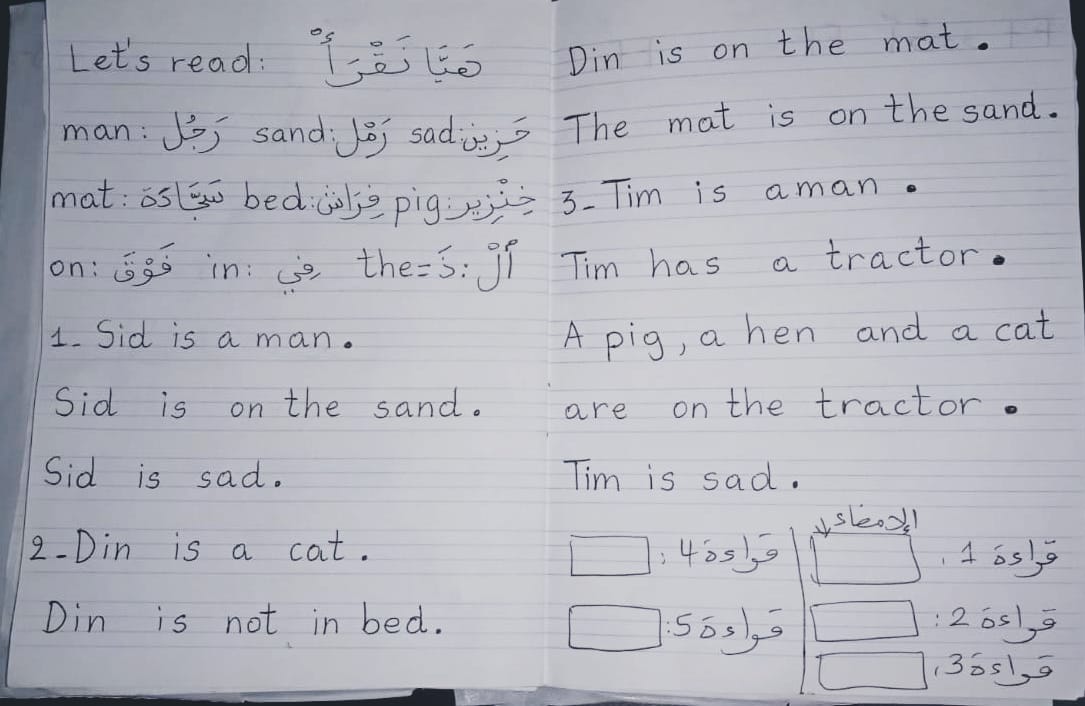 Let's read: هَيَّا نَقْرَأْ
man: رَجُل sand: رَمْل sad: حَزِين
mat: سَجَّادَة bed: فِرَاش pig: خِنْزِير
on: فَوْقَ in: فِي the=ذَ: أَلْ
1- Sid is a man.
Sid is on the sand.
Sid is sad.
2-Din is a cat.
Din is not in bed.
Din is on the mat.
The mat is on the sand.
3- Tim is aman.
Tim has a tractor.
A pig, a hen and a cat
are on the tractor.
Tim is sad.
الإمضاء
قراءة 1:
قراءة 2:
قراءة 3:
قراءة 4:
قراءة 5: